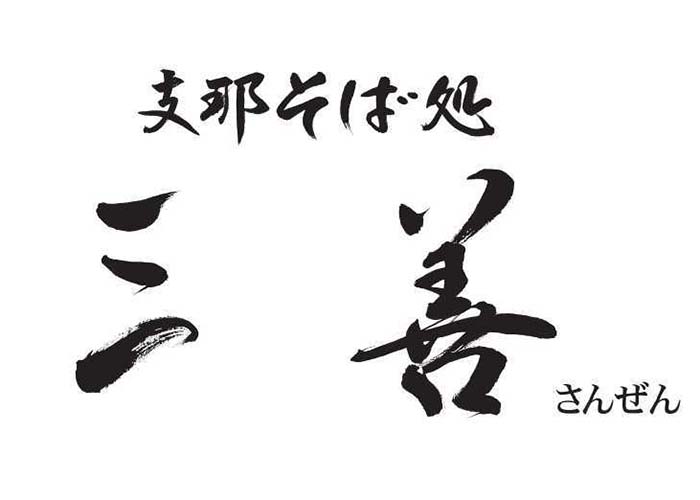 支那そば処
三善
さんぜん